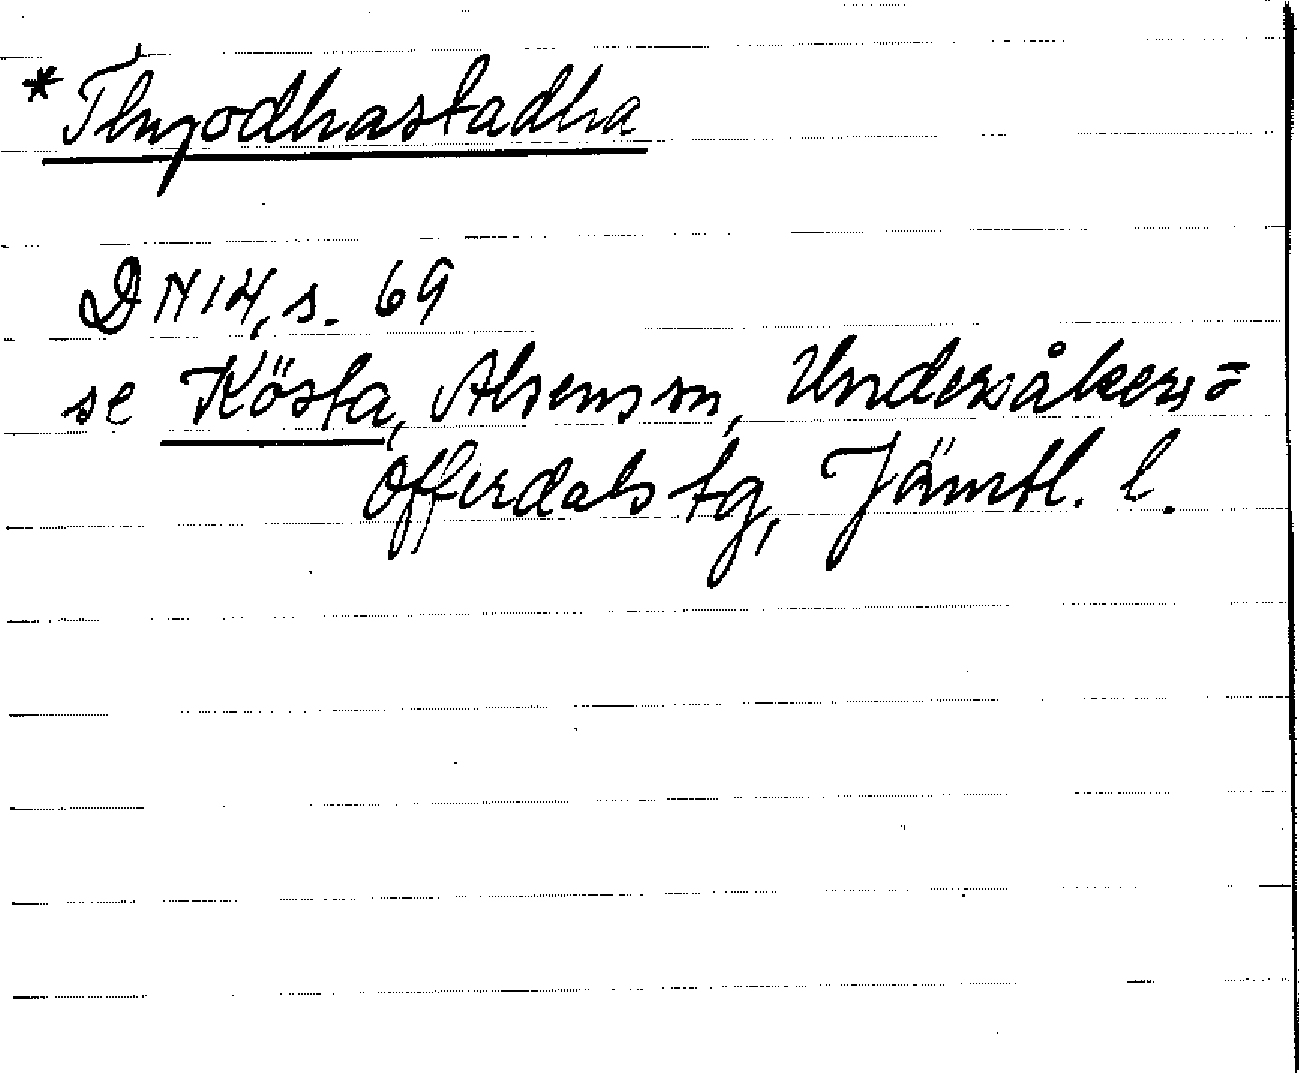 * Thyodhastadha
DN 14, s. 69
se Kösta, Alsens sn, Undersåkers=
Offerdals tg, Jämtl. l.